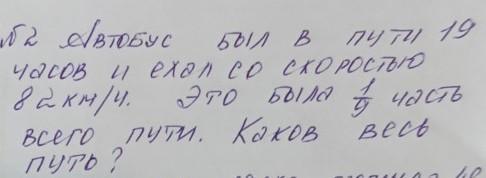 №2 Автобус был в пути 19
часов и ехал со скоростью
82км/ч. Это была 1/9 часть
всего пути. Каков весь
путь?